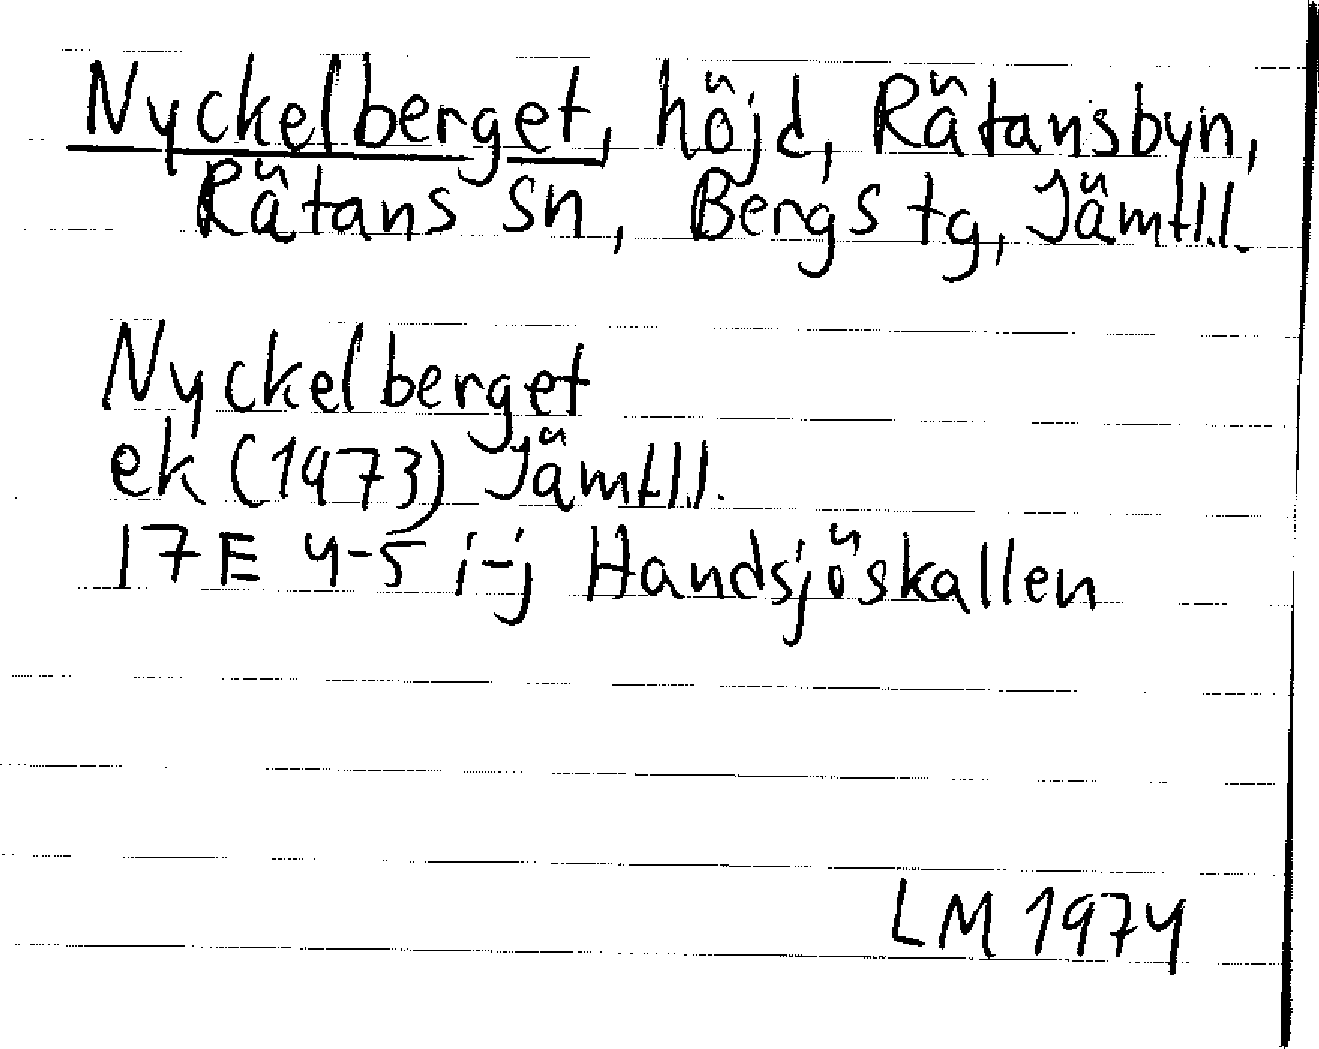 Nyckelberget, höjd, Rätansbyn,
Rätans sn, Bergs tg, Jämtl.l.
Nyckelberget
ek (1973) Jämtl.l.
17E 4-5 i-j Handsjöskallen
LM 1974